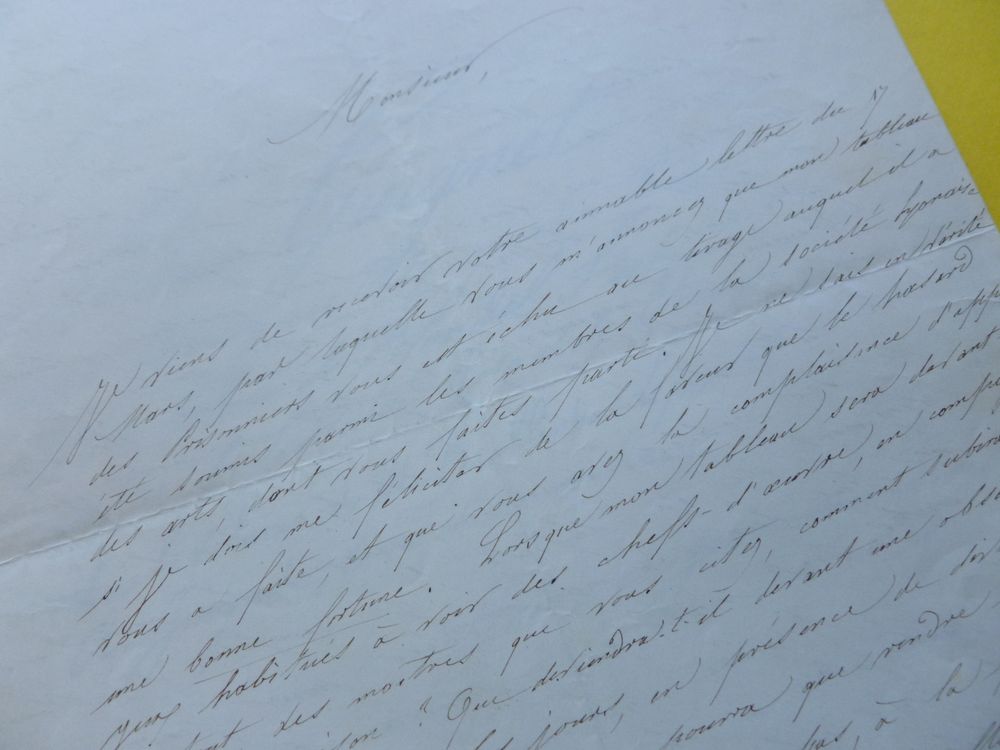 Monsieur,
Je viens de recevoir votre aimable lettre du 17
Mars, par laquelle vous m'annoncez que mon tableau
des Prisonniers vous est échu au tirage auquel il a
été soumis parmi les membres de la société lyonaise
des arts, dont vous faites partie. Je ne sais en vérité
si je dois me féliciter de la faveur que le hasard
vous a faite, et que vous avez la complaisance d'app
une bonne fortune. Lorsque mon tableau sera devant
yeux habitués à voir des chefs-d'œuvre, en comp
des maîtres que vous citez, comment subira
? Que deviendra-t-il devant une obse
jours, en présence de
pourra que rendre
pas, à la